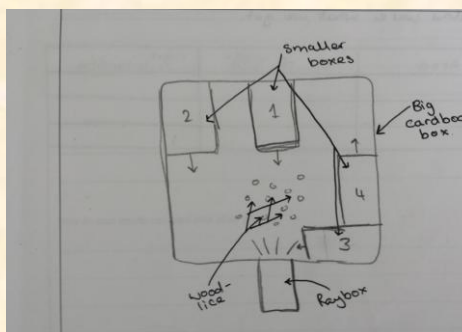 smaller
boxes
2
1
Big
cardboa
box.
4
3
wood-
lice
Raybox